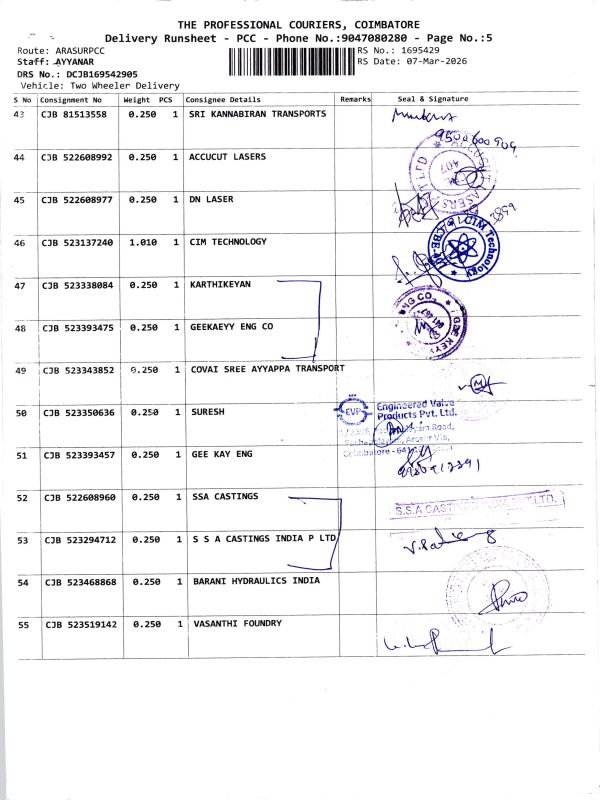 THE PROFESSIONAL COURIERS, COIMBATORE
Delivery Runsheet - PCC - Phone No.:9047080280 - Page No.:5
Route: ARASURPCC
RS No.: 1695429
Staff: AYYANAR
RS Date: 07-Mar-2026
DRS No.: DCJB169542905
Vehicle: Two Wheeler Delivery
S No Consignment No Weight PCS Consignee Details Remarks Seal & Signature
43 CJB 81513558 0.250 1 SRI KANNABIRAN TRANSPORTS
44 CJB 522608992 0.250 1 ACCUCUT LASERS
45 CJB 522608977 0.250 1 DN LASER
46 CJB 523137240 1.010 1 CIM TECHNOLOGY
CIM Technology
47 CJB 523338084 0.250 1 KARTHIKEYAN
48 CJB 523393475 0.250 1 GEEKAEYY ENG CO
49 CJB 523343852 0.250 1 COVAI SREE AYYAPPA TRANSPORT
50 CJB 523350636 0.250 1 SURESH
EVP Engineered Valve
Products Pvt. Ltd.
51 CJB 523393457 0.250 1 GEE KAY ENG
52 CJB 522608960 0.250 1 SSA CASTINGS
53 CJB 523294712 0.250 1 S S A CASTINGS INDIA P LTD
54 CJB 523468868 0.250 1 BARANI HYDRAULICS INDIA
55 CJB 523519142 0.250 1 VASANTHI FOUNDRY